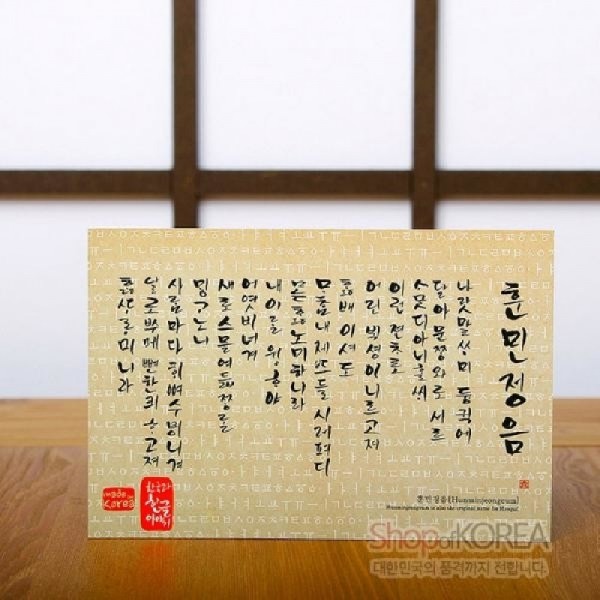 훈민정음
나랏말ᄊᆞ미 듕귁에
달아 문ᄍᆞᆼ와로 서르
ᄉᆞᄆᆞᆺ디 아니ᄒᆞᆯᄊᆡ
이런 젼ᄎᆞ로
어린 ᄇᆡᆨ셩이 니르고져
홇배 이셔도
ᄆᆞᄎᆞᆷ내 제 ᄠᅳ들 시러펴디
몯ᄒᆞᇙ 노미 하니라
내 이ᄅᆞᆯ 윙ᄒᆞ야
어엿비 너겨
새로 스믈여듧 ᄍᆞᆼᄅᆞᆯ
ᄆᆡᇰᄀᆞ노니
사ᄅᆞᆷ마다 ᄒᆡᅇᅧ 수ᄫᅵ 니겨
날로 ᄡᅮ메 뼌한킈 ᄒᆞ고져
ᄒᆞᇙ ᄯᆞᄅᆞ미니라
훈민정음(Hunminjeongeum)
Hunminjeongeum is also the original name for Hangul
한글
이야기
Shop of KOREA
대한민국의 품격까지 전합니다.